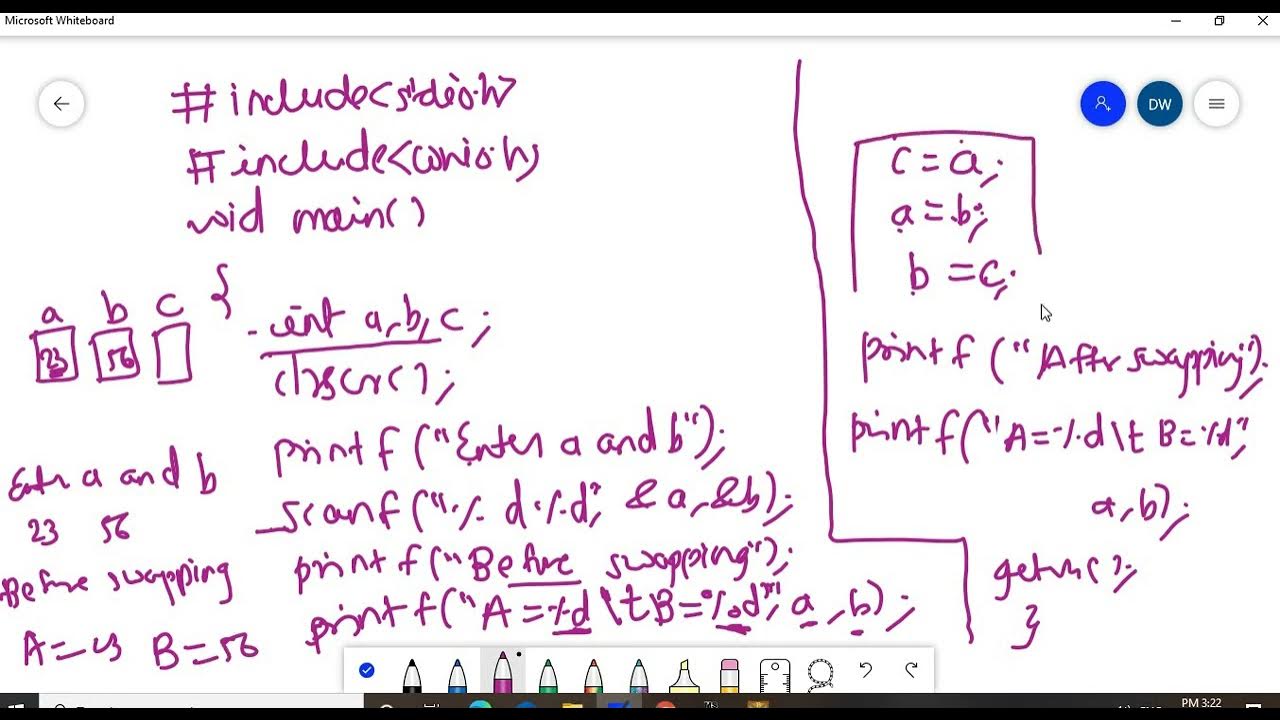 Microsoft Whiteboard
DW
#include<stdio.h>
#include<conio.h>
void main()
{
int a,b,c;
clrscr();
printf("Enter a and b");
scanf("%d%d",&a,&b);
printf("Before swapping");
printf("A=%d\tB=%d",a,b);
a b c
23 56
Enter a and b
23 56
Before swapping
A=23 B=56
c=a;
a=b;
b=c;
printf("After swapping");
printf("A=%d\t B=%d",
a,b);
getch();
}
PM 3:22